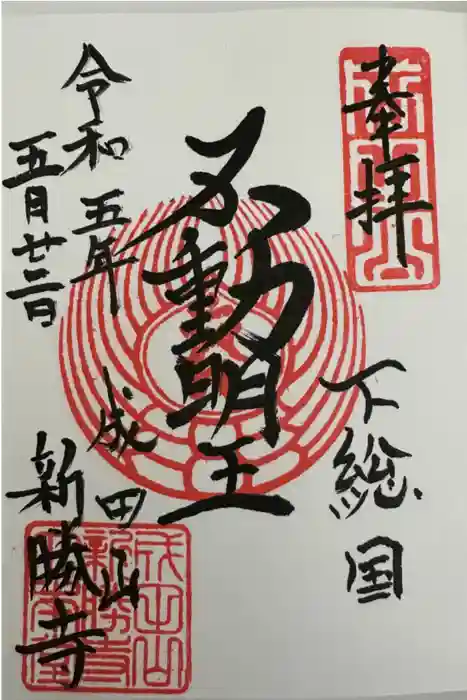 奉拝
下総国
不動明王
令和五年
五月廿三日
成田山
新勝寺
成田山
新勝寺